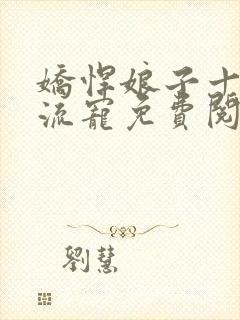 嬌悍娘子十
流寵免費閱
劉慧